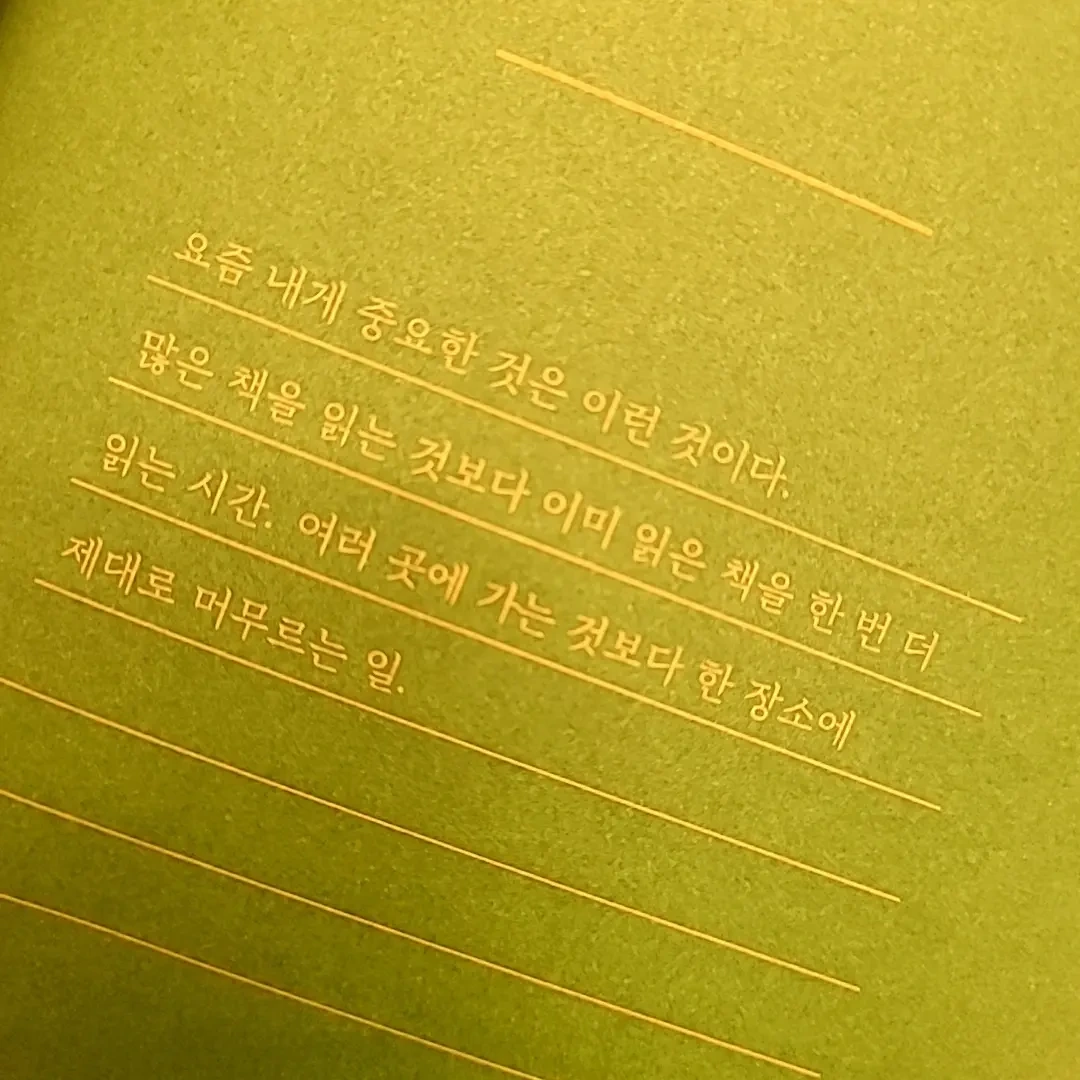 요즘 내게 중요한 것은 이런 것이다.
많은 책을 읽는 것보다 이미 읽은 책을 한 번 더
읽는 시간. 여러 곳에 가는 것보다 한 장소에
제대로 머무르는 일.